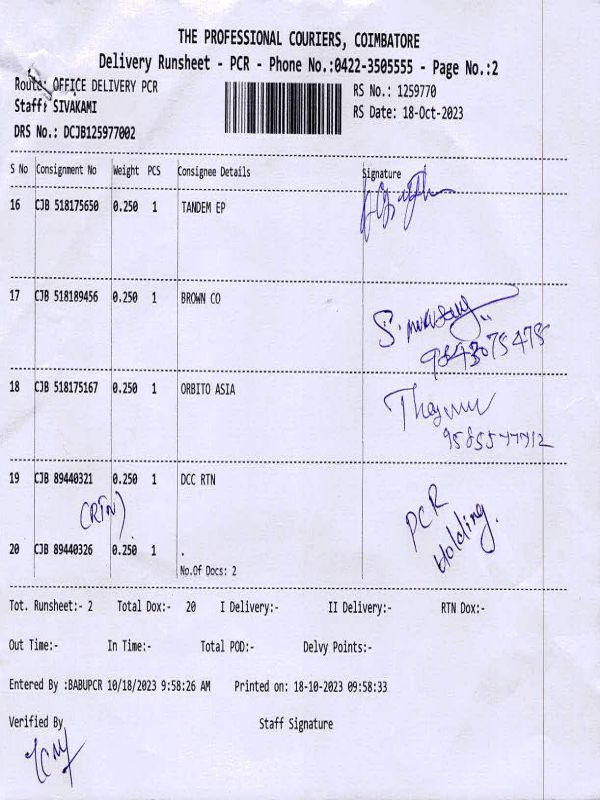 THE PROFESSIONAL COURIERS, COIMBATORE
Delivery Runsheet - PCR - Phone No.:0422-3505555 - Page No.:2
Route: OFFICE DELIVERY PCR RS No.: 1259770
Staff: SIVAKAMI RS Date: 18-Oct-2023
DRS No.: DCJB125977002
S No Consignment No Weight PCS Consignee Details Signature
16 CJB 518175650 0.250 1 TANDEM EP
17 CJB 518189456 0.250 1 BROWN CO
9843075475
18 CJB 518175167 0.250 1 ORBITO ASIA
19 CJB 89440321 0.250 1 DCC RTN
(RTN) PCR
Holding.
20 CJB 89440326 0.250 1 .
No.Of Docs: 2
Tot. Runsheet:- 2 Total Dox:- 20 I Delivery:- II Delivery:- RTN Dox:-
Out Time:- In Time:- Total POD:- Delvy Points:-
Entered By :BABUPCR 10/18/2023 9:58:26 AM Printed on: 18-10-2023 09:58:33
Verified By Staff Signature